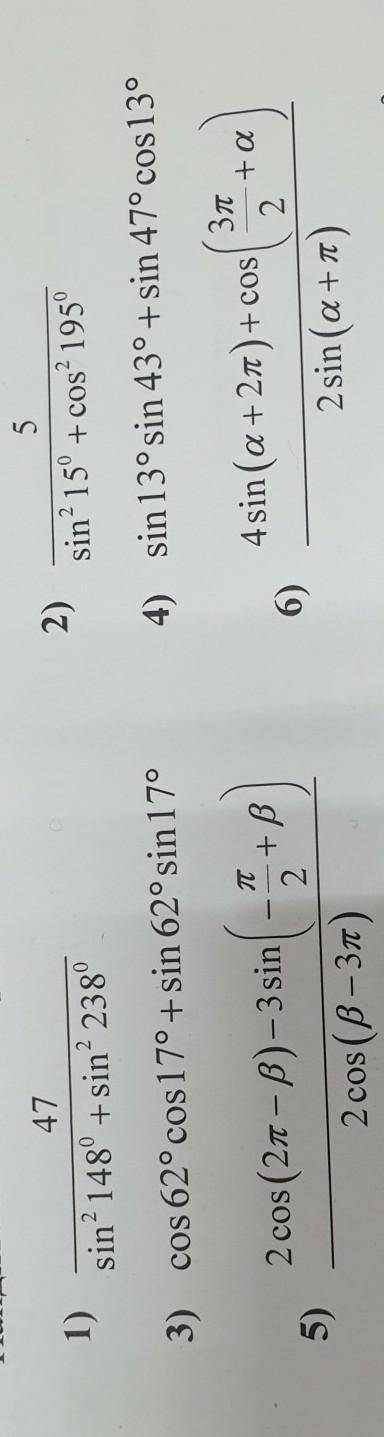 1) 47 / (sin² 148⁰ + sin² 238⁰)
2) 5 / (sin² 15⁰ + cos² 195⁰)
3) cos 62° cos 17° + sin 62° sin 17°
4) sin 13° sin 43° + sin 47° cos 13°
5) (2 cos(2π − β) − 3 sin(−π/2 + β)) / (2 cos(β − 3π))
6) (4 sin(α + 2π) + cos(3π/2 + α)) / (2 sin(α + π))